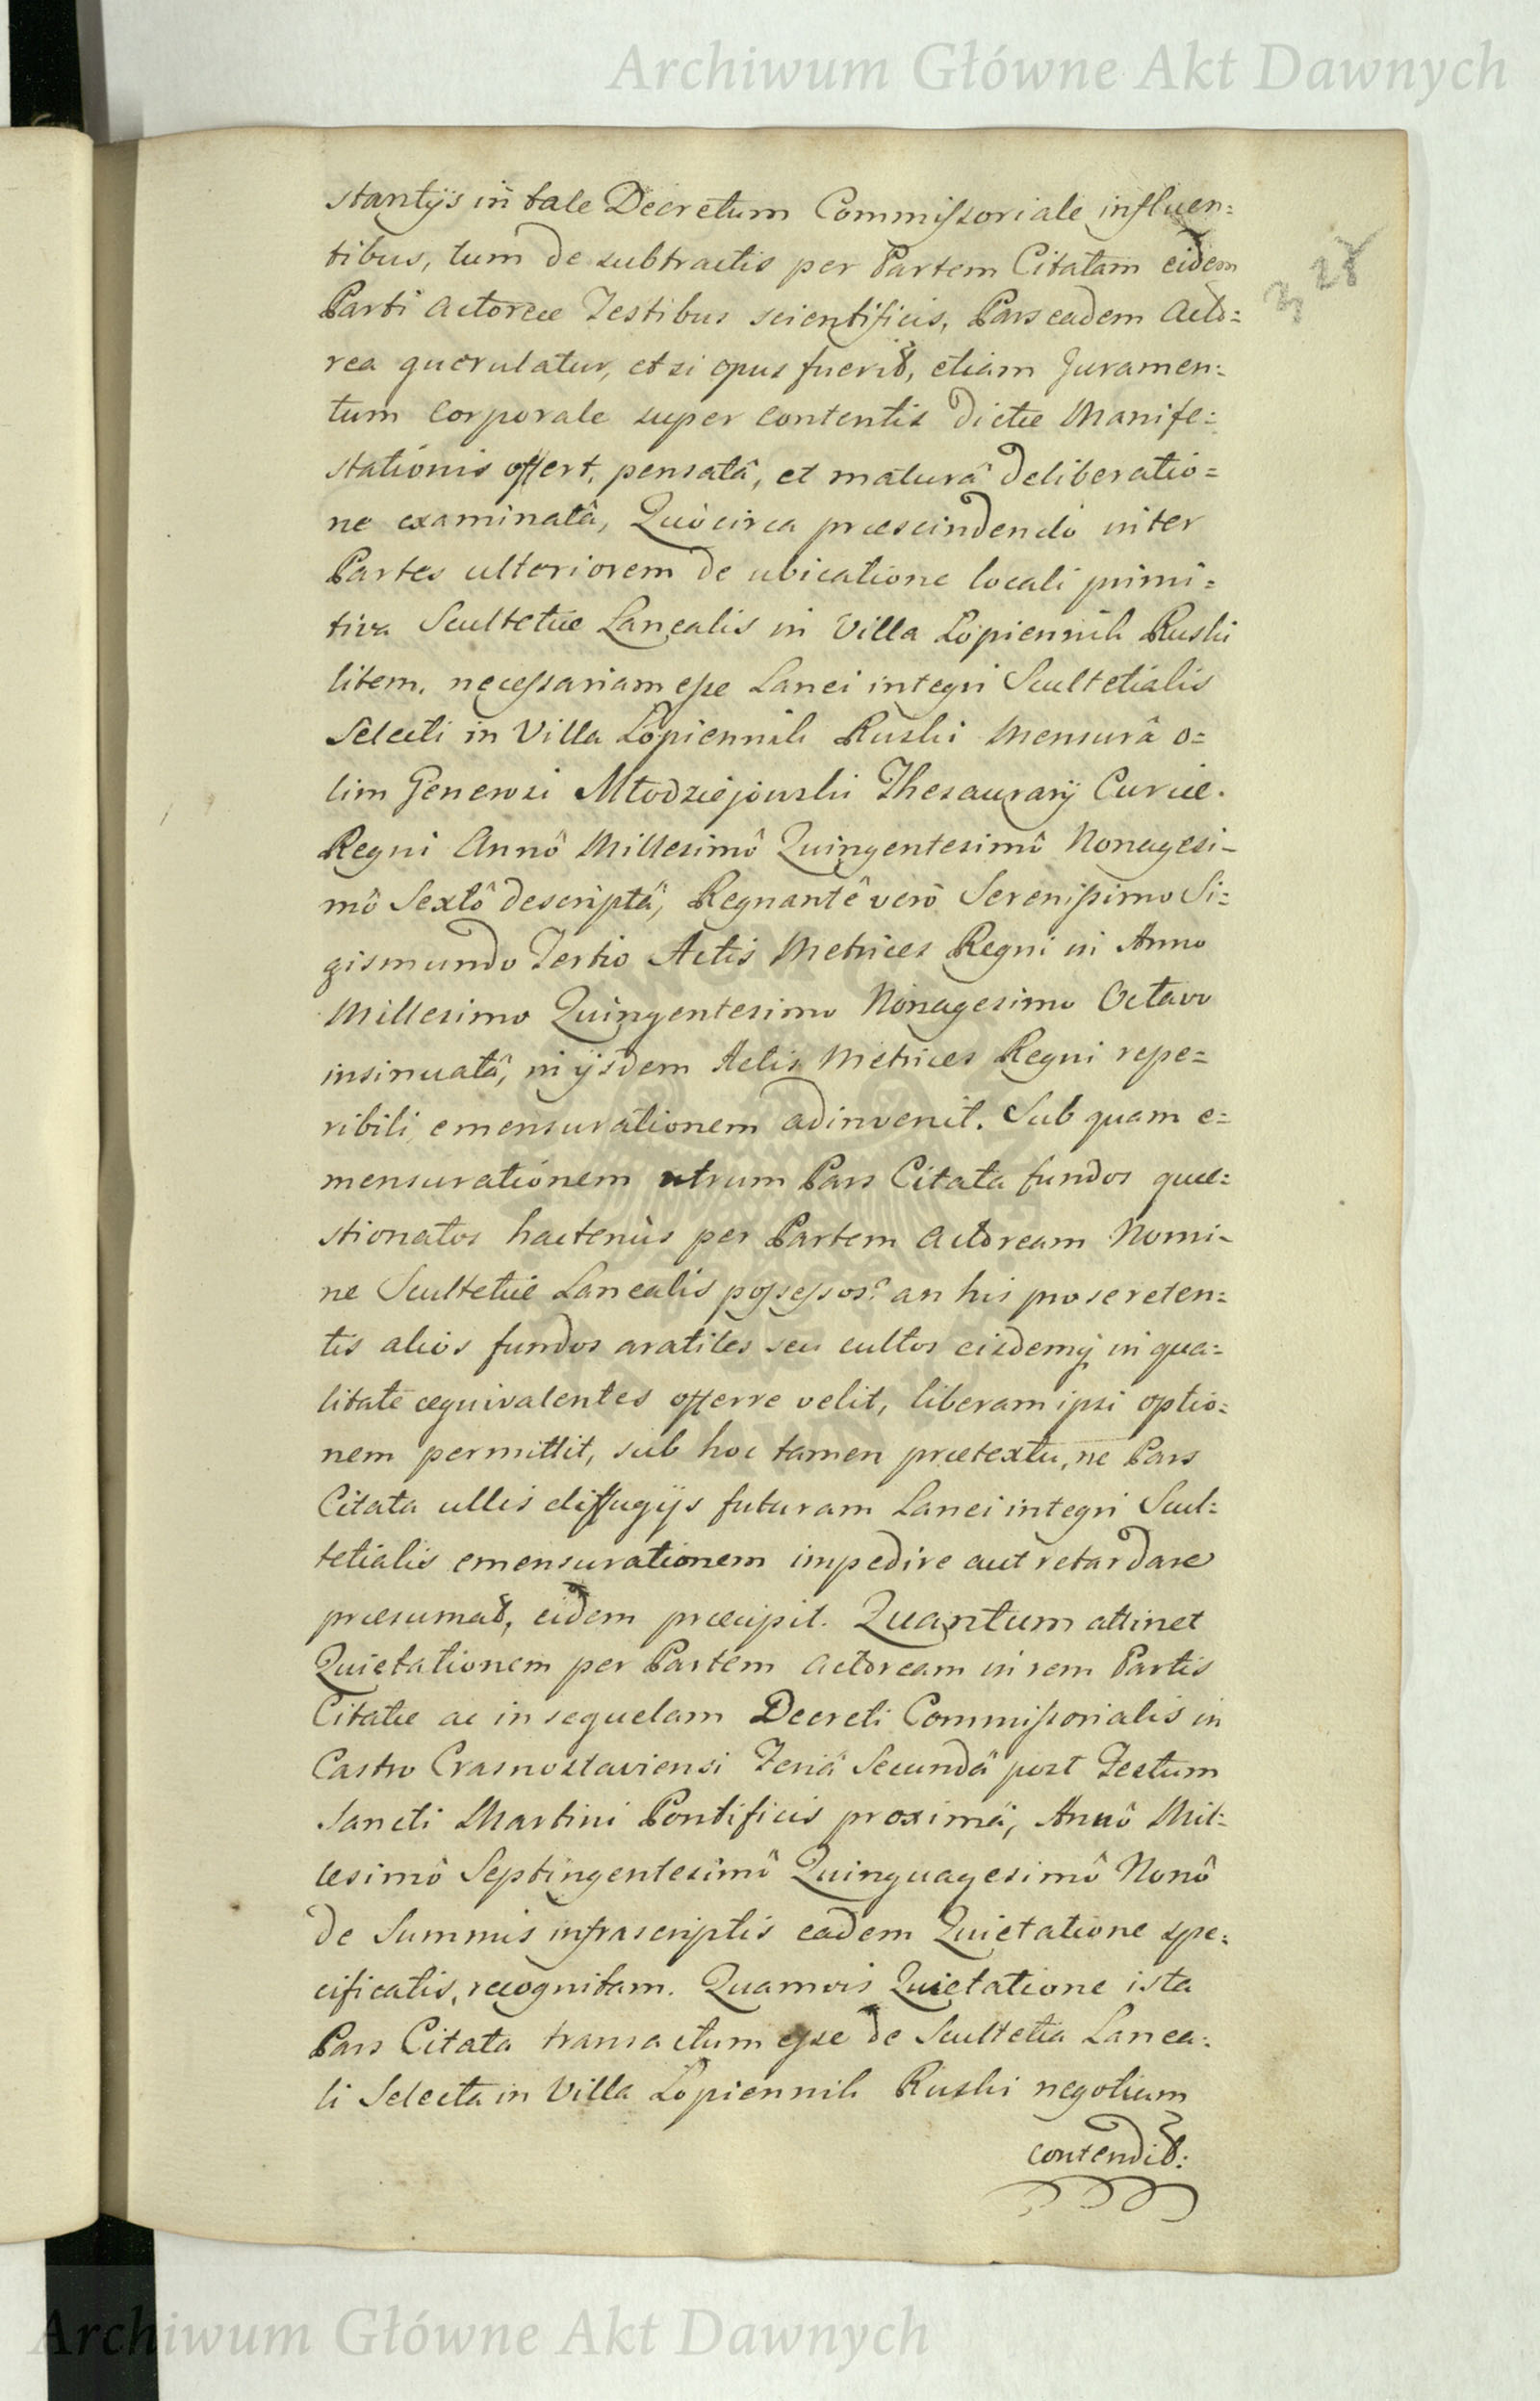 Archiwum Główne Akt Dawnych
stantijs in tale Decretum Commissoriale influen=
tibus, tum de subtractis per Partem Citatam eidem
28
3
Parti Actoreæ Testibus scientificis, Pars eadem Acto=
rea querulatur, et si opus fuerit, etiam Juramen=
tum Corporale super contentis dictæ Manife=
stationis offert, pensatâ, et maturâ deliberatio=
ne examinatâ, Quòcirca præscindendo inter
Partes ulteriorem de ubicatione locali primi=
tiva Scultetiæ Lanealis in Villa Łopiennik Ruski
litem, necessariam esse Lanei integri Scultetialis
Selecti in Villa Łopiennik Ruski Mensurâ o=
lim Genewsi Młodziejowski Thesaurarij Curiæ
Regni Annô Millesimô Quingentesimô Nonagesi=
mô Sextô descriptâ, Regnantê verò Serenissimo Si=
gismundo Tertio Actis Metrices Regni in Anno
Millesimo Quingentesimo Nonagesimo Octavo
insinuatâ, in ijsdem Actis Metrices Regni repe=
ribili emensurationem adinvenit. Sub quam e=
mensurationem utrum Pars Citata fundos quæ=
stionatos hactenùs per Partem Actoream Nomi=
ne Scultetiæ Lanealis possessos? an his pro se reten=
tis alios fundos aratiles seu cultos eisdemq; in qua=
litate æquivalentes offerre velit, liberam ipsi optio=
nem permittit, sub hoc tamen prætextu, ne Pars
Citata ullis diffugijs futuram Lanei integri Scul=
tetialis emensurationem impedire aut retardare
præsumat, eidem præcipit. Quantum attinet
Quietationem per Partem Actoream in rem Partis
Citatæ ac in sequelam Decreti Commissorialis in
Castro Crasnostaviensi Feriâ Secundâ post Festum
Sancti Martini Pontificis proximâ, Annô Mil=
lesimô Septingentesimô Quinquagesimô Nonô
de Summis infrascriptis eadem Quietatione spe=
cificatis, recognitam. Quamvis Quietatione ista
Pars Citata transactum esse de Scultetia Lanea=
li Selecta in Villa Łopiennik Ruski negotium
contendit:
Archiwum Główne Akt Dawnych